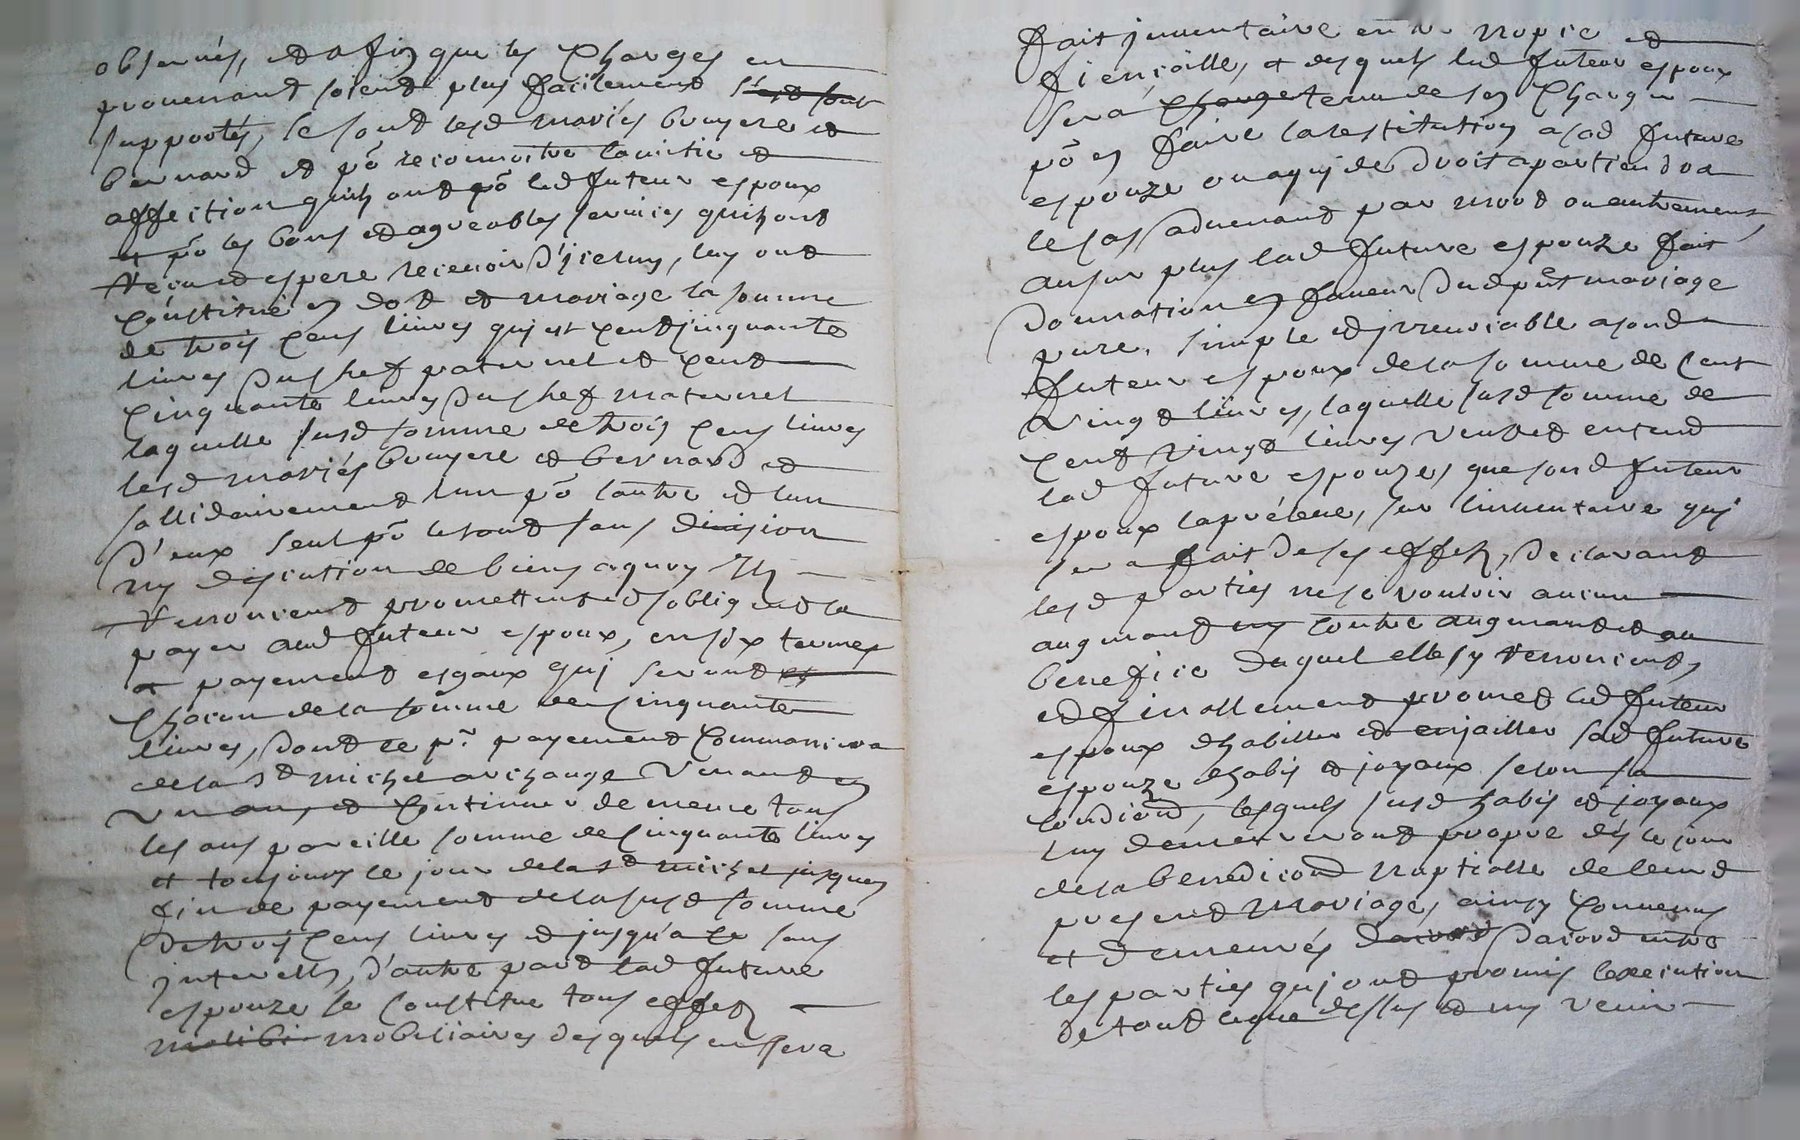 observés, et afin que les charges en
provenant soient plus facilement s'est sont
supportés, se sont lesd mariés bruyere et
bernard et po reconnoitre lamitié et
affection quils ont po led futeur espoux
et po les bons et agreables services quils ont
receu et espere recevoir d'jceluy, luy ont
constitué en dot et mariage la somme
de trois cens livres quj est cent cinquante
livres du chef paternel et cent
cinquante livres du chef maternel
laquelle susd somme de trois cens livres
lesd mariés bruyere et bernard et
sollidairement lun po lautre et lun
d'eux seul po le tout sans division
ny discution de biens a quoy Ils
renoncent promettent et sobligent la
payer aud futeur espoux, en six termes
et payement esgaux quj seront et
chacun de la somme de cinquante
livres, dont le pr payement commancera
de la st michel archange venant en
un an, et continuer de meme tous
les ans pareille somme de cinquante livres
et toujours le jour de la st michel jusques
fin de payement de la susd somme
de trois cens livres et jusqu'a ce sans
jnterets, d'autre part lad future
espouze se constitue tous effets
mobiliaires desquels en sera
fait jnventaire entre nopce et
fiençaille, et desquels led futeur espoux
sera charge tenu de sen charger
po en faire la restitution a sad future
espouze ou a quj de droit apartiendra
le cas advenant par mort ou autrement
au sur plus lad future espouze fait
donnation en faveur dud pnt mariage
pure, simple et jrrevociable a sond
futeur espoux de la somme de cent
vingt livres, laquelle susd somme de
cent vingt livres veut et entend
lad future espouze, que sond futeur
espoux la préleve, sur linventaire quj
sera fait de ses effets, declarant
lesd parties ne se vouloir aucun
augmant ny contre augmant et au
benefice duquel elles y renoncent,
et finallement promet led futeur
espoux dhabiller et enjailler sad future
espouze dhabis et joyaux selon sa
condiond, lesquels susd habis et joyaux
luy demeureront propre dés le jour
de la benediciond nuptialle de leurd
present mariage, ainsy convenus
et demeurés dacord dacord entre
les parties quj ont promis lexecution
de tout ce que dessus et ny venir